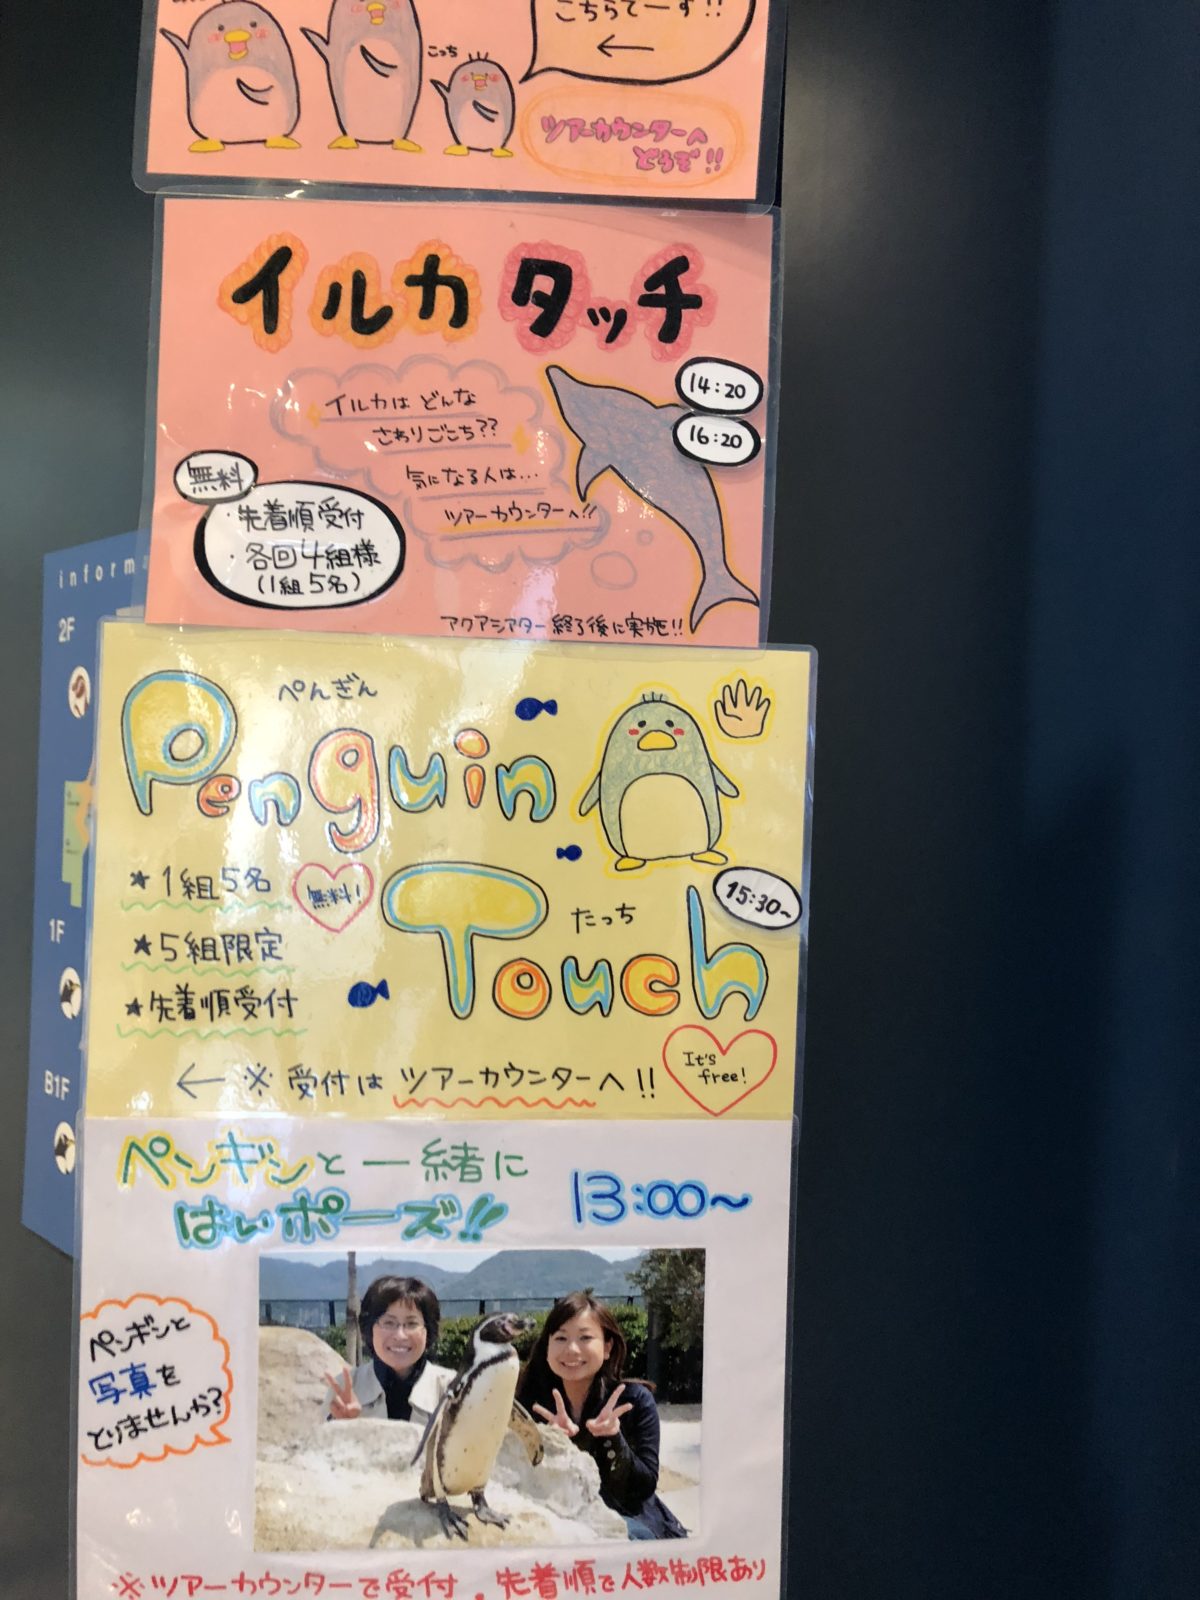 こちらでーす!!
←
こっち
ツアーカウンターへ
どうぞ!!
イルカタッチ
14:20
16:20
イルカは どんな
さわりごこち??
気になる人は…
ツアーカウンターへ!!
無料
・先着順受付
・各回4組様
(1組5名)
アクアシアター終了後に実施!!
informa
2F
1F
B1F
ぺんぎん
Penguin
★1組5名
無料!
Touch
たっち
15:30~
★5組限定
★先着順受付
← ※ 受付は ツアーカウンターへ!!
It's
free!
ペンギンと一緒に
はいポーズ!!
13:00~
ペンギンと
写真を
とりませんか?
※ツアーカウンターで受付。先着順で人数制限あり